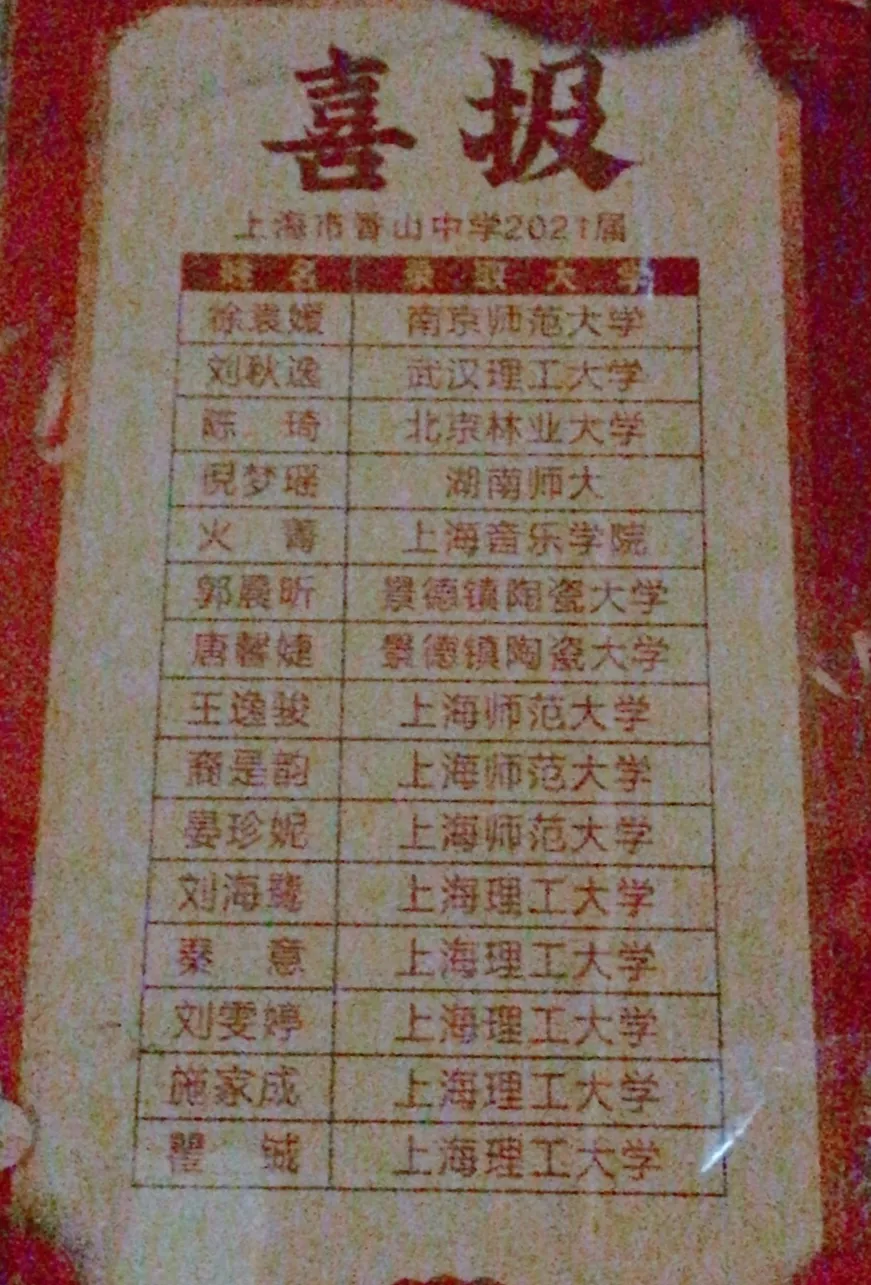 喜报
上海市香山中学2021届
姓名 录取大学
徐袁媛 南京师范大学
刘秋逸 武汉理工大学
陈琦 北京林业大学
倪梦瑶 湖南师大
火菁 上海音乐学院
郭晨昕 景德镇陶瓷大学
唐馨婕 景德镇陶瓷大学
王逸骏 上海师范大学
裔是韵 上海师范大学
晏珍妮 上海师范大学
刘海鹭 上海理工大学
秦意 上海理工大学
刘雯婷 上海理工大学
施家成 上海理工大学
瞿铖 上海理工大学